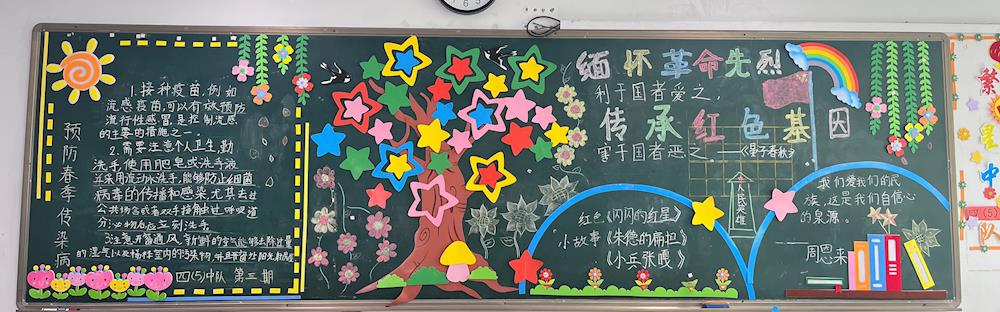 预防春季传染病
1.接种疫苗,例如
流感疫苗,可以有效预防
流行性感冒,是控制流感
的主要的措施之一。
2.需要注意个人卫生,勤
洗手使用肥皂或洗手液
并采用流动水洗手,能够防止细菌
病毒的传播和感染,尤其去过
公共场合或者双手接触过呼吸道
分泌物后应立刻洗手
3.注意开窗通风,新鲜的空气能够去除过量
的湿气以及稀释室内的污染物,并且
四(5)中队 第三期
缅怀革命先烈
利于国者爱之,
传承红色基因
害于国者恶之。——《晏子春秋》
人民英雄
红色《闪闪的红星》
小故事《朱德的扁担》
《小兵张嘎》
我们爱我们的民
族,这是我们自信心
的泉源。
周恩来
繁星中队
四(5)